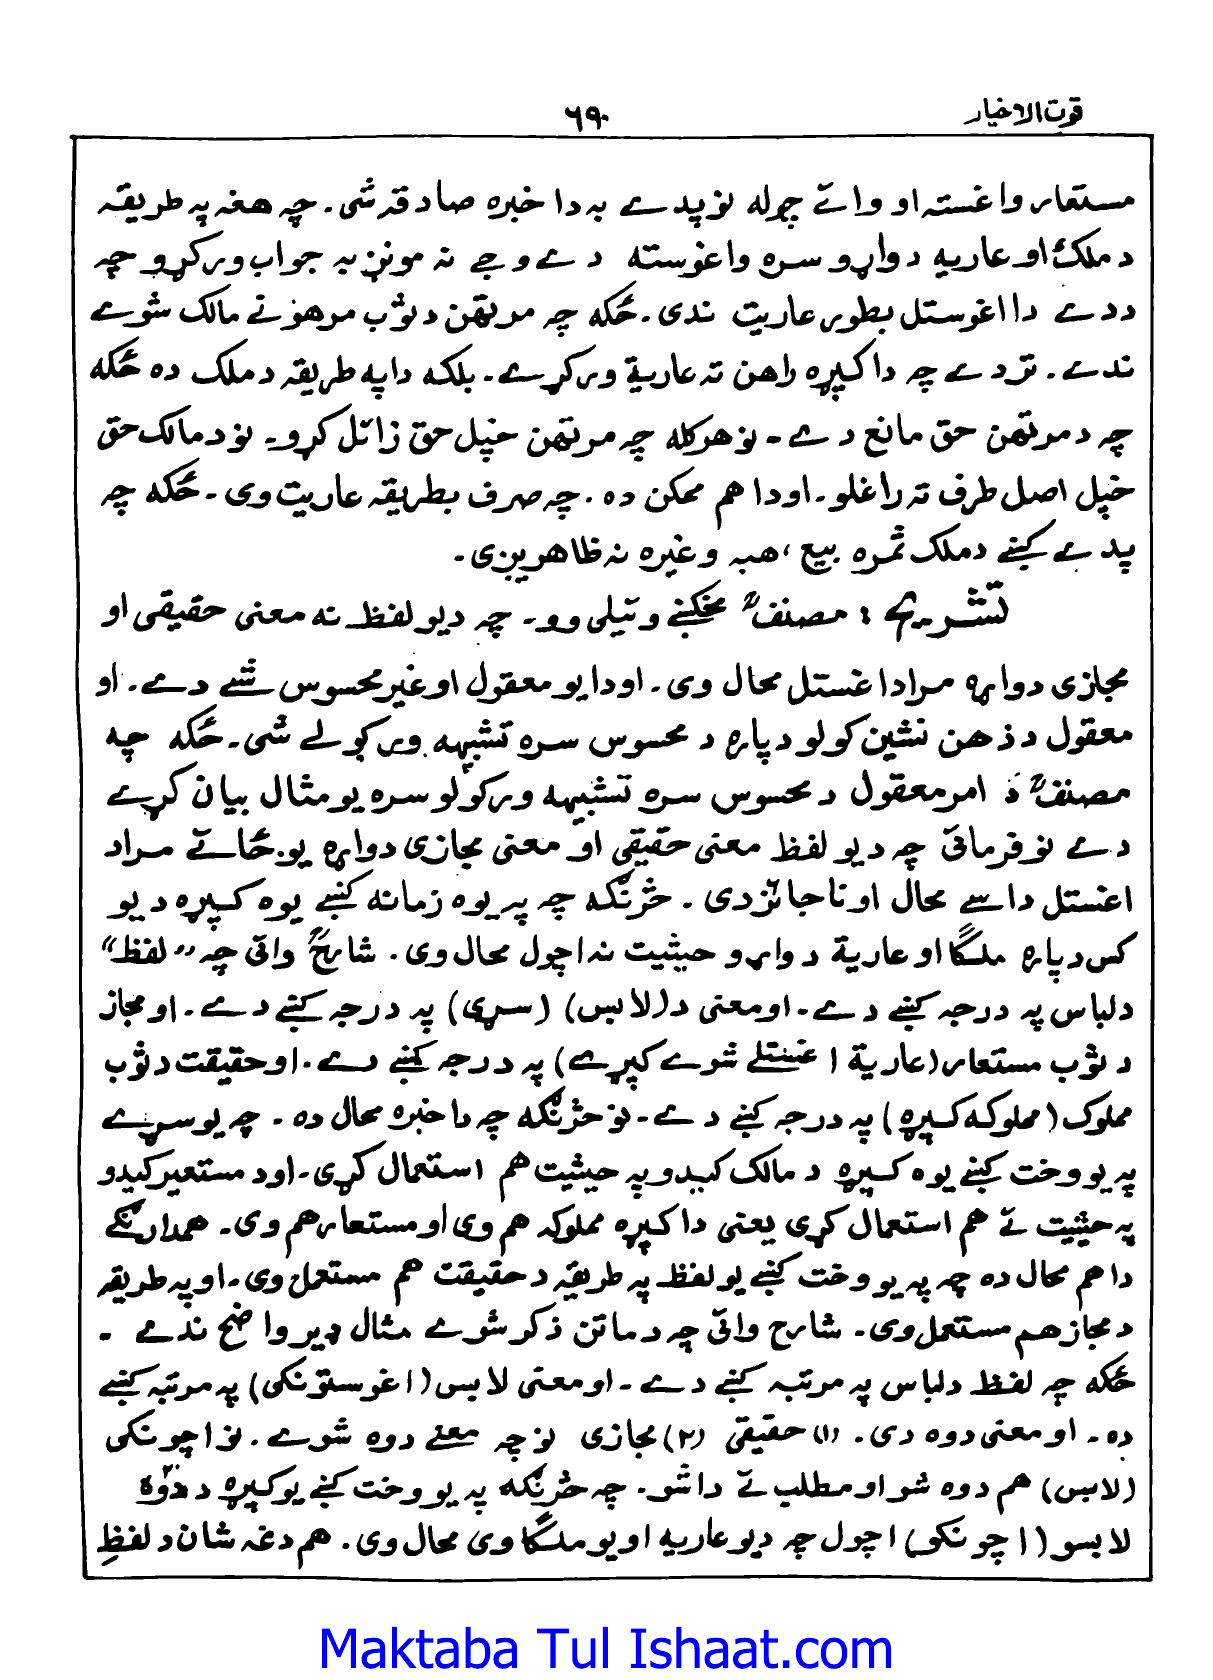 قوت الاخیار ۶۹۰
مستعار واغسته او وائے چوله نو پدے به دا خبره صادقه شی. چه هغه په طریقه
د ملکؑ او عاریه دواړو سره واغوسته دے وجے نه مونږ به جواب ورکړو چه
ددے دا اغوستل بطور عاریت ندی. ځکه چه مرتهن د ثوب مرهونے مالک شوے
ندے. تردے چه دا کپړه راهن ته عاریةً ورکړے. بلکه دا په طریقه د ملک ده ځکه
چه د مرتهن حق مانع دے - نو هرکله چه مرتهن خپل حق زائل کړو. نو د مالک حق
خپل اصل طرف ته راغلو. او دا هم ممکن ده. چه صرف بطریقه عاریت وی. ځکه چه
پدے کښے د ملک ثمره بیع، هبه وغیره نه ظاهریږی.
تشریح : مصنفؒ مخکښے وئیلی وو. چه د یو لفظ نه معنی حقیقی او
مجازی دواړه مراد اغستل محال وی. او دا یو معقول او غیر محسوس شے دے. او
معقول د ذهن نشین کولو دپاره د محسوس سره تشبیهه ورکولے شی. ځکه چه
مصنفؒ دَ امر معقول د محسوس سره تشبیهه ورکولو سره یو مثال بیان کړے
دے نو فرمائی چه د یو لفظ معنی حقیقی او معنی مجازی دواړه یو ځائے مراد
اغستل داسے محال او ناجائز دی. څرنګه چه په یوه زمانه کښے یوه کپړه د یو
کس دپاره ملکًا او عاریةً د واړو حیثیت نه اچول محال وی. شارحؒ وائی چه "لفظ"
د لباس په درجه کښے دے. او معنی د(لابس) (سړی) په درجه کښے دے. او مجاز
د ثوب مستعار (عاریة اغستلے شوے کپړے) په درجه کښے دے. او حقیقت د ثوب
مملوک (مملوکه کپړه) په درجه کښے دے. نو څرنګه چه دا خبره محال ده. چه یو سړے
په یو وخت کښے یوه کپړه د مالک کیدو په حیثیت هم استعمال کړی. او د مستعیر کیدو
په حیثیت ئے هم استعمال کړی یعنی دا کپړه مملوکه هم وی او مستعار هم وی. همدارنګے
دا هم محال ده چه په یو وخت کښے یو لفظ په طریقه د حقیقت هم مستعمل وی. او په طریقه
د مجاز هم مستعمل وی. شارح وائی چه د ماتن ذکر شوے مثال ډیر واضح ندے .
ځکه چه لفظ د لباس په مرتبه کښے دے. او معنی لابس (اغوستونکی) په مرتبه کښے
ده. او معنی دوه دی. (۱) حقیقی (۲) مجازی نو چه معنے دوه شوے. نو اچونکی
(لابس) هم دوه شو او مطلب ئے دا شو. چه څرنګه په یو وخت کښے یو کپړه د دوَه
لابسو (اچونکو) اچول چه د یو عاریه او یو ملکًا وی محال وی. هم دغه شان د لفظِ
Maktaba Tul Ishaat.com